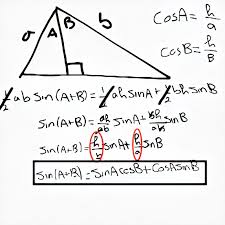 a A B b
CosA = h/a
CosB = h/B
1/2 ab sin(A+B) = 1/2 ah sinA + 1/2 bh sinB
sin(A+B) = ah/ab sinA + bh/ab sinB
sin(A+B) = h/b sinA + h/a sinB
sin(A+B) = sinAcosB + CosAsinB